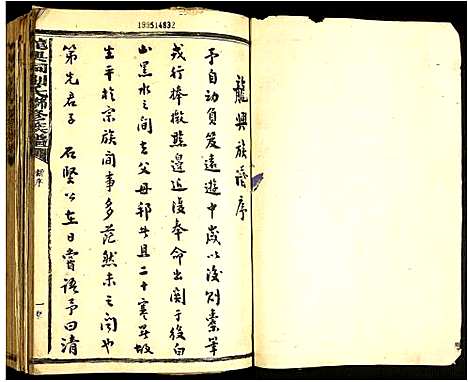 199514832
龍興族譜序
予自幼負笈遠遊中歲以後則橐筆
戎行捧檄熊邊近復奉命出關于役白
山黑水之間去父母邦者且二十寒暑故
生平於宗族間事多茫然未之聞也
第先君子 石賢公在日嘗語予曰清